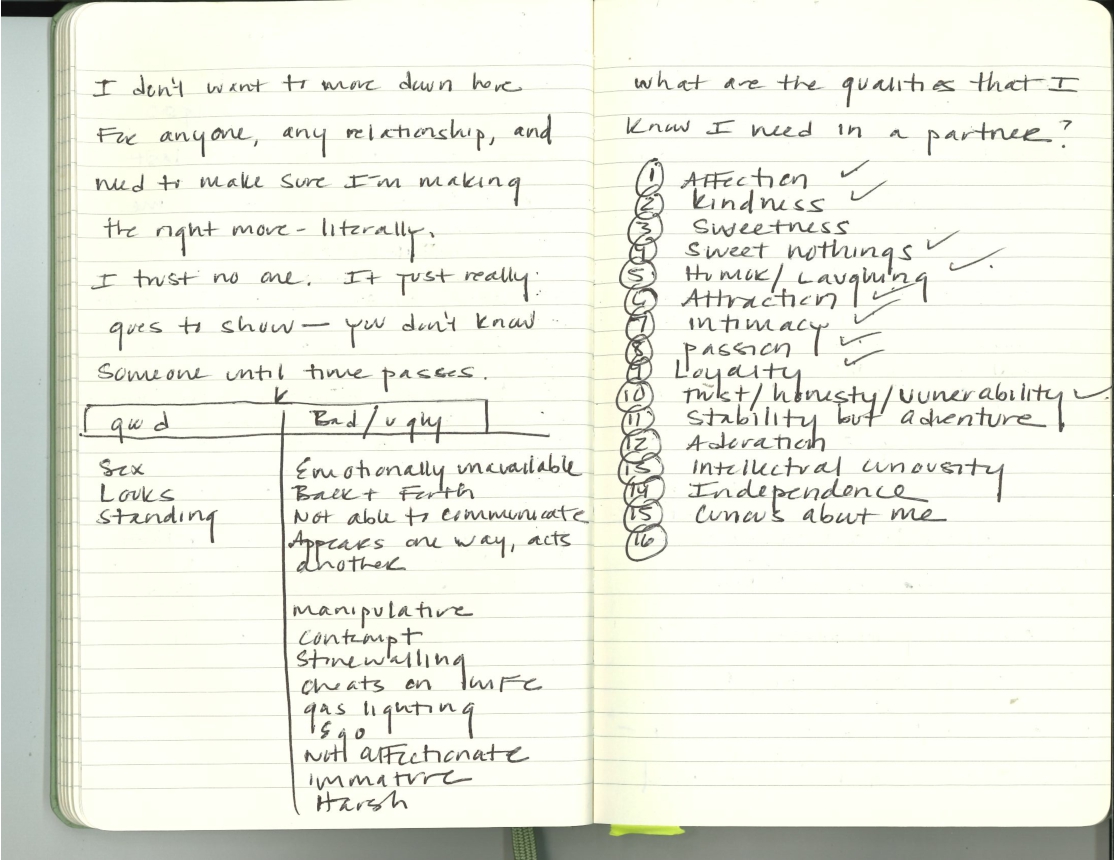 I don't want to move down here
For anyone, any relationship, and
need to make sure I'm making
the right move - literally.
I trust no one. It just really
goes to show — you don't know
Someone until time passes.
good Bad/ugly
Sex Emotionally unavailable
Looks Back + Forth
Standing Not able to communicate
Appears one way, acts
another
manipulative
contempt
Stonewalling
cheats on
gas lighting
Ego
Not affectionate
immature
Harsh
what are the qualities that I
know I need in a partner?
1 Affection ✓
2 kindness ✓
3 Sweetness
4 Sweet nothings ✓
5 Humor/Laughing ✓
6 Attraction ✓
7 intimacy ✓
8 passion ✓
9 Loyalty ✓
10 Trust/honesty/vunerability ✓
11 Stability but adventure
12 Adoration
13 Intellectual curiousity
14 Independence
15 curious about me
16